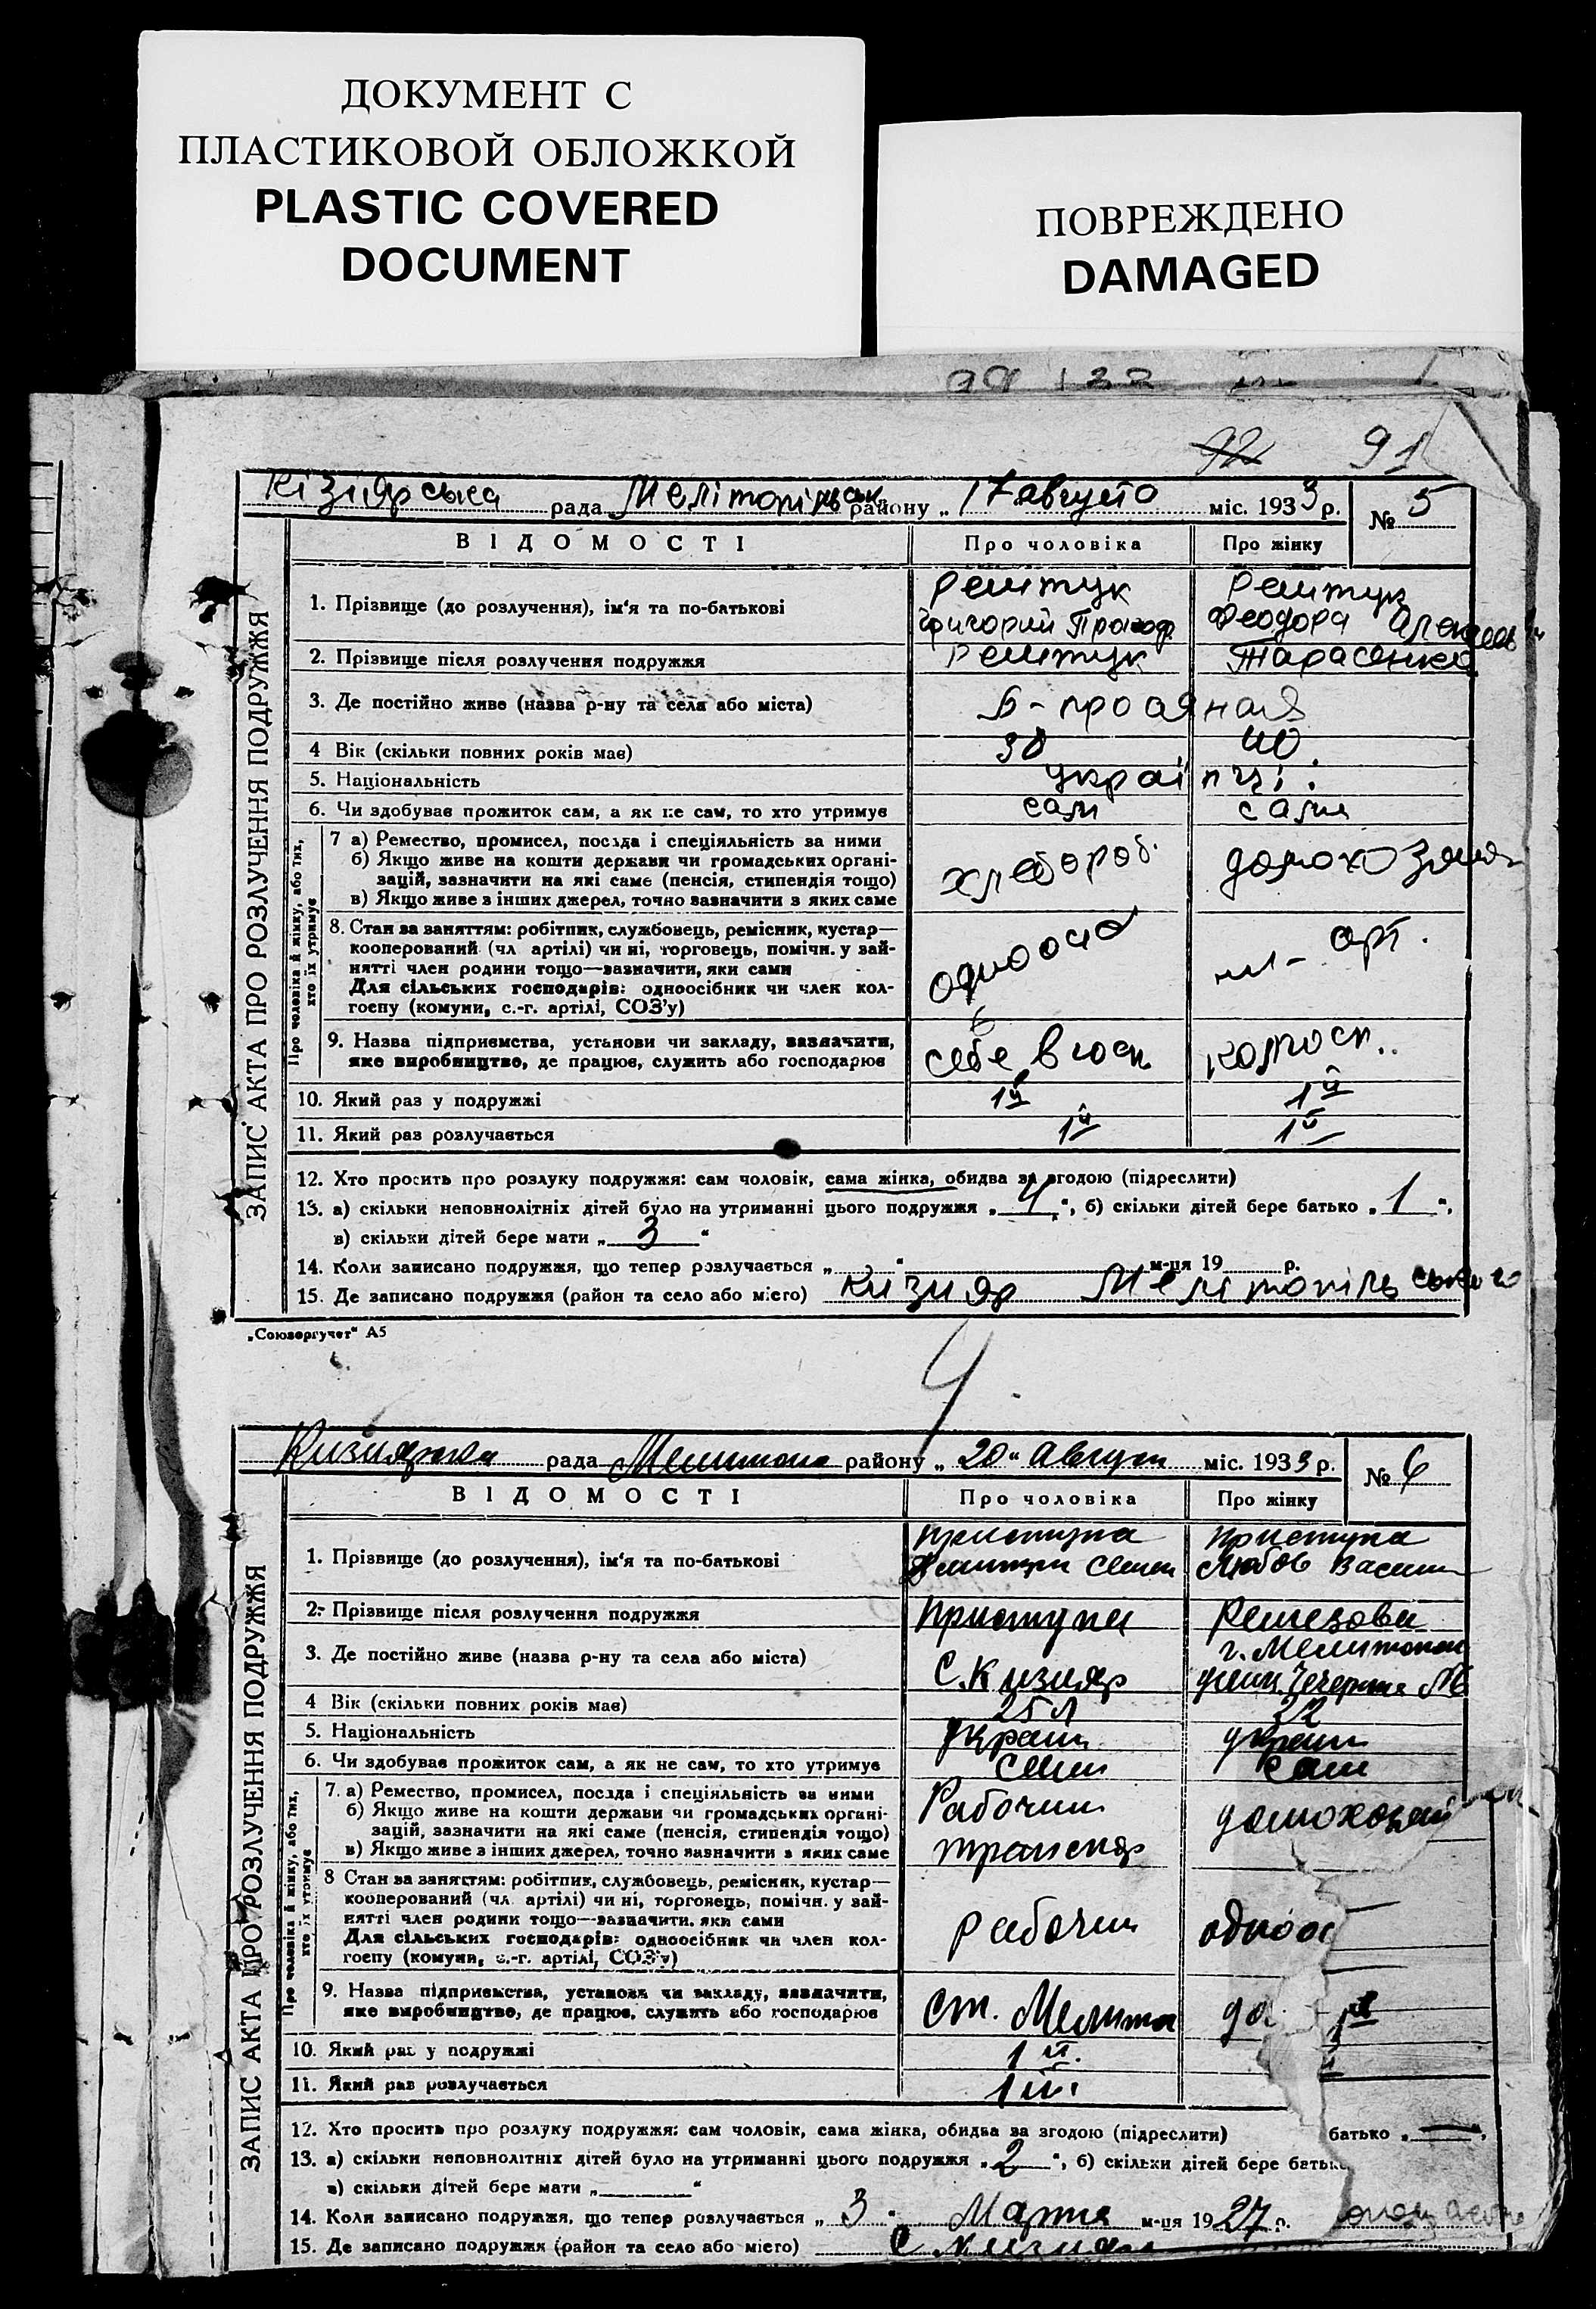 ДОКУМЕНТ С
ПЛАСТИКОВОЙ ОБЛОЖКОЙ
PLASTIC COVERED
DOCUMENT
ПОВРЕЖДЕНО
DAMAGED
92 91
Кізиярська рада Мелітопільськ району „ 17 августа міс. 1933 р. № 5
ВІДОМОСТІ Про чоловіка Про жінку
ЗАПИС АКТА ПРО РОЗЛУЧЕННЯ ПОДРУЖЖЯ
1. Прізвище (до розлучення), ім'я та по-батькові
Рештук Рештук
Григорий Прокоф. Феодора
2. Прізвище після розлучення подружжя Рештук Тарасенко
3. Де постійно живе (назва р-ну та села або міста)
4 Вік (скільки повних років має) 38 40
5. Національність україпці.
6. Чи здобуває прожиток сам, а як не сам, то хто утримує сам сама
Про чоловіка й жінку, або тих, хто їх утримує
7 а) Ремество, промисел, посада і спеціяльність за ними
б) Якщо живе на кошти держави чи громадських органі-
зацій, зазначити на які саме (пенсія, стипендія тощо)
в) Якщо живе з інших джерел, точно зазначити з яких саме
хлебороб.
8. Стан за заняттям: робітник, службовець, ремісник, кустар—
кооперований (чл артілі) чи ні, торговець, помічн. у зай-
нятті член родини тощо—зазначити, яки сами
Для сільських господарів: одноосібник чи член кол-
госпу (комуни, с.-г. артілі, СОЗ'у)
арт.
9. Назва підприємства, установи чи закладу, зазначити,
яке виробництво, де працює, служить або господарює
себе в госп колгосп..
10. Який раз у подружжі 1й 1й
11. Який раз розлучається 1й 1й
12. Хто просить про розлуку подружжя: сам чоловік, сама жінка, обидва за згодою (підреслити)
13. а) скільки неповнолітніх дітей було на утриманні цього подружжя „ 4 “, б) скільки дітей бере батько „ 1 “,
в) скільки дітей бере мати „ 3 “
14. Коли записано подружжя, що тепер розлучається „ “ м-ця 19 р.
15. Де записано подружжя (район та село або місто) Кизияр Мелітопільського
„Союзоргучет“ А5
4
рада району „ 20 “ август міс. 1933 р. № 6
ВІДОМОСТІ Про чоловіка Про жінку
ЗАПИС АКТА ПРО РОЗЛУЧЕННЯ ПОДРУЖЖЯ
1. Прізвище (до розлучення), ім'я та по-батькові
Приступа Приступа
Дмитри Семен Любов Васили
2. Прізвище після розлучення подружжя Приступа
3. Де постійно живе (назва р-ну та села або міста)
г. Мелитопол
С. Кизияр
4 Вік (скільки повних років має) 25 л 22
5. Національність украин украин
6. Чи здобуває прожиток сам, а як не сам, то хто утримує сам сам
Про чоловіка й жінку, або тих, хто їх утримує
7. а) Ремество, промисел, посада і спеціяльність за ними
б) Якщо живе на кошти держави чи громадських органі-
зацій, зазначити на які саме (пенсія, стипендія тощо)
в) Якщо живе з інших джерел, точно зазначити з яких саме
Рабочий домохозяй
транспор
8 Стан за заняттям: робітник, службовець, ремісник, кустар—
кооперований (чл. артілі) чи ні, торговець, помічн. у зай-
нятті член родини тощо—зазначити, яки сами
Для сільських господарів: одноосібник чи член кол-
госпу (комуни, с.-г. артілі, СОЗ'у)
рабочий одноос
9. Назва підприємства, установи чи закладу, зазначити,
яке виробництво, де працює, служить або господарює
ст. Мелитоп
10. Який раз у подружжі 1й.
11. Який раз розлучається 1й.
12. Хто просить про розлуку подружжя: сам чоловік, сама жінка, обидва за згодою (підреслити) батько „ — “,
13. а) скільки неповнолітніх дітей було на утриманні цього подружжя „ 2 “, б) скільки дітей бере батьк
в) скільки дітей бере мати „ “
14. Коли записано подружжя, що тепер розлучається „ 3 “ Марта м-ця 1927 р.
15. Де записано подружжя (район та село або місто) С Кизияр